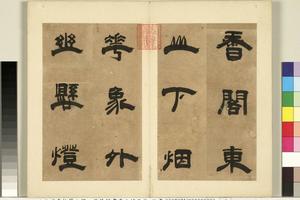 香閣東
山下烟
華象外
幽懸燈